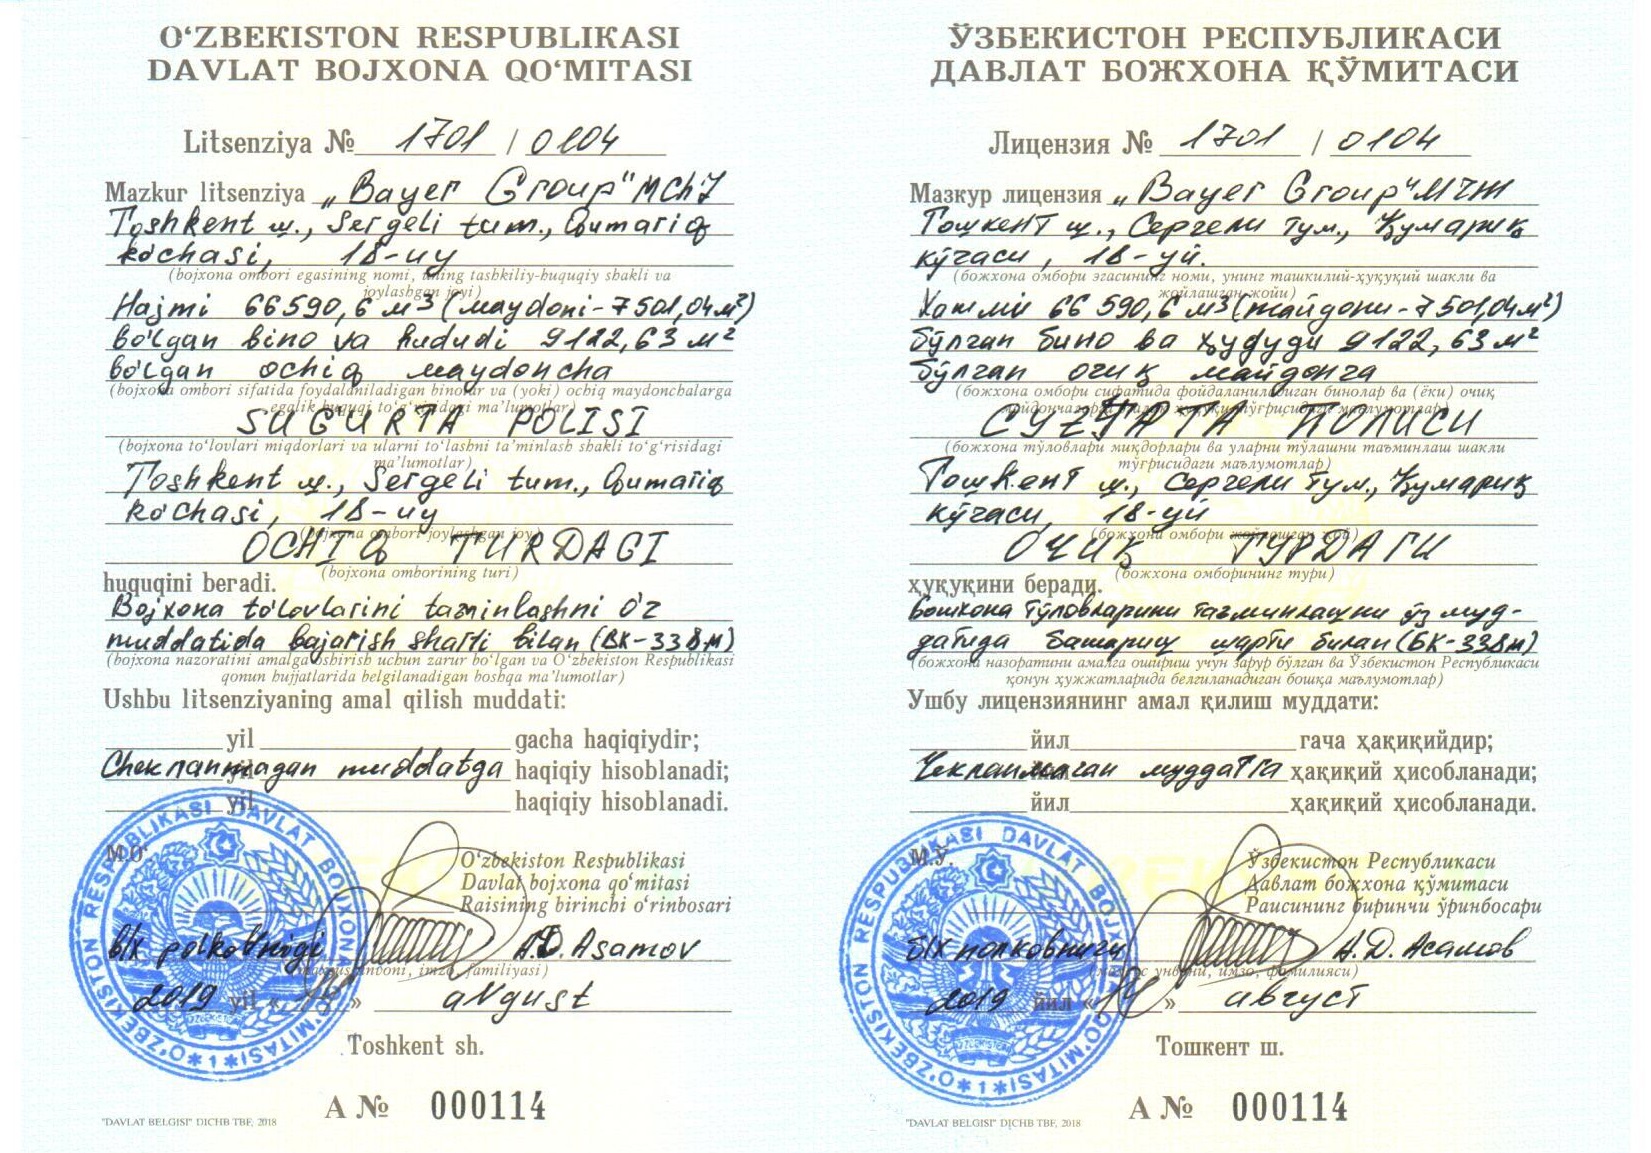 O‘ZBEKISTON RESPUBLIKASI
DAVLAT BOJXONA QO‘MITASI
Litsenziya № 1701 / 0104
Mazkur litsenziya „Bayer Group" MChJ
Toshkent sh., Sergeli tum., Qumariq
ko'chasi, 18-uy
(bojxona ombori egasining nomi, uning tashkiliy-huquqiy shakli va
joylashgan joyi)
Hajmi 66590,6 м³ (maydoni-7501,04м²)
bo'lgan bino va hududi 9122,63 м²
bo'lgan ochiq maydoncha
(bojxona ombori sifatida foydalaniladigan binolar va (yoki) ochiq maydonchalarga
egalik huquqi to‘g‘risidagi ma’lumotlar)
SUG'URTA POLISI
(bojxona to‘lovlari miqdorlari va ularni to‘lashni ta’minlash shakli to‘g‘risidagi
ma’lumotlar)
Toshkent sh., Sergeli tum., Qumariq
ko'chasi, 18-uy
(bojxona ombori joylashgan joy)
OCHIQ TURDAGI
(bojxona omborining turi)
huquqini beradi.
Bojxona to'lovlarini taminlashni o'z
muddatida bajarish sharti bilan (BK-338м)
(bojxona nazoratini amalga oshirish uchun zarur bo‘lgan va O‘zbekiston Respublikasi
qonun hujjatlarida belgilanadigan boshqa ma’lumotlar)
Ushbu litsenziyaning amal qilish muddati:
yil gacha haqiqiydir;
Cheklanmagan muddatga haqiqiy hisoblanadi;
yil haqiqiy hisoblanadi.
M.O‘.
O‘zbekiston Respublikasi
Davlat bojxona qo‘mitasi
Raisining birinchi o‘rinbosari
b/x polkovnigi A.D. Asamov
(maxsus unvoni, imzo, familiyasi)
2019 yil «14» avgust
O‘ZBEKISTON RESPUBLIKASI DAVLAT BOJXONA QO‘MITASI * 1 *
Toshkent sh.
A № 000114
"DAVLAT BELGISI" DICHB TBF, 2018
ЎЗБЕКИСТОН РЕСПУБЛИКАСИ
ДАВЛАТ БОЖХОНА ҚЎМИТАСИ
Лицензия № 1701 / 0104
Мазкур лицензия „Bayer Group" МЧЖ
Тошкент ш., Сергели тум., Қумариқ
кўчаси, 18-уй.
(божхона омбори эгасининг номи, унинг ташкилий-ҳуқуқий шакли ва
жойлашган жойи)
Хажми 66 590,6 м³ (майдони-7501,04м²)
бўлган бино ва ҳудуди 9122,63 м²
бўлган очиқ майдонча
(божхона омбори сифатида фойдаланиладиган бинолар ва (ёки) очиқ
майдончаларга эгалик ҳуқуқи тўғрисидаги маълумотлар)
СУҒУРТА ПОЛИСИ
(божхона тўловлари миқдорлари ва уларни тўлашни таъминлаш шакли
тўғрисидаги маълумотлар)
Тошкент ш., Сергели тум., Қумариқ
кўчаси, 18-уй
(божхона омбори жойлашган жой)
ОЧИҚ ТУРДАГИ
(божхона омборининг тури)
ҳуқуқини беради.
Божхона тўловларини таъминлашни ўз муд-
датида бажариш шарти билан (БК-338м)
(божхона назоратини амалга ошириш учун зарур бўлган ва Ўзбекистон Республикаси
қонун ҳужжатларида белгиланадиган бошқа маълумотлар)
Ушбу лицензиянинг амал қилиш муддати:
йил гача ҳақиқийдир;
Чекланмаган муддатга ҳақиқий ҳисобланади;
йил ҳақиқий ҳисобланади.
М.Ў.
Ўзбекистон Республикаси
Давлат божхона қўмитаси
Раисининг биринчи ўринбосари
б/х полковниги А.Д. Асамов
(махсус унвони, имзо, фамилияси)
2019 йил «14» август
O‘ZBEKISTON RESPUBLIKASI DAVLAT BOJXONA QO‘MITASI * 1 *
Тошкент ш.
А № 000114
"DAVLAT BELGISI" DICHB TBF, 2018